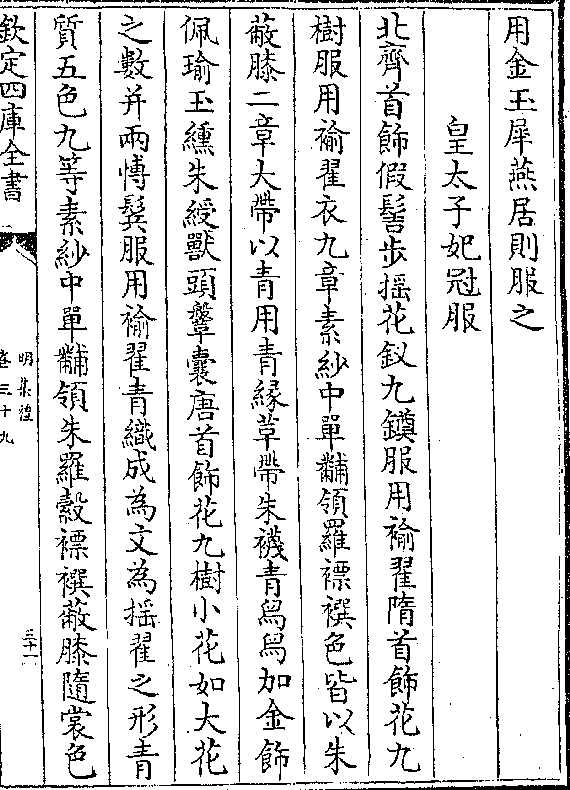 用金玉犀燕居則服之
皇太子妃冠服
北齊首飾假髻步摇花釵九鏌服用褕翟隋首飾花九
樹服用褕翟衣九章素紗中單黼領羅褾襈色皆以朱
蔽膝二章大帶以青用青緣草帶朱襪青舄舄加金飾
佩瑜玉纁朱綬獸頭鞶囊唐首飾花九樹小花如大花
之數并兩博鬂服用褕翟青織成為文為揺翟之形青
質五色九等素紗中單黼領朱羅縠褾襈蔽膝隨裳色
欽定四庫全書
明集禮
卷三十九
三十一